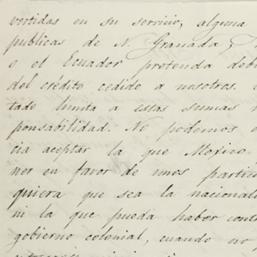 vertidas en su servicio, alguna
publicas de N. Granada,
o el Ecuador pretenda deb
del crédito cedido a nosotros.
tado limita a estas sumas
ponsabilidad. No podemos
cia aceptar la que Mexico
ner en favor de unos partic
quiera que sea la nacionali
ni la que pueda haber cont
gobierno colonial, cuando no